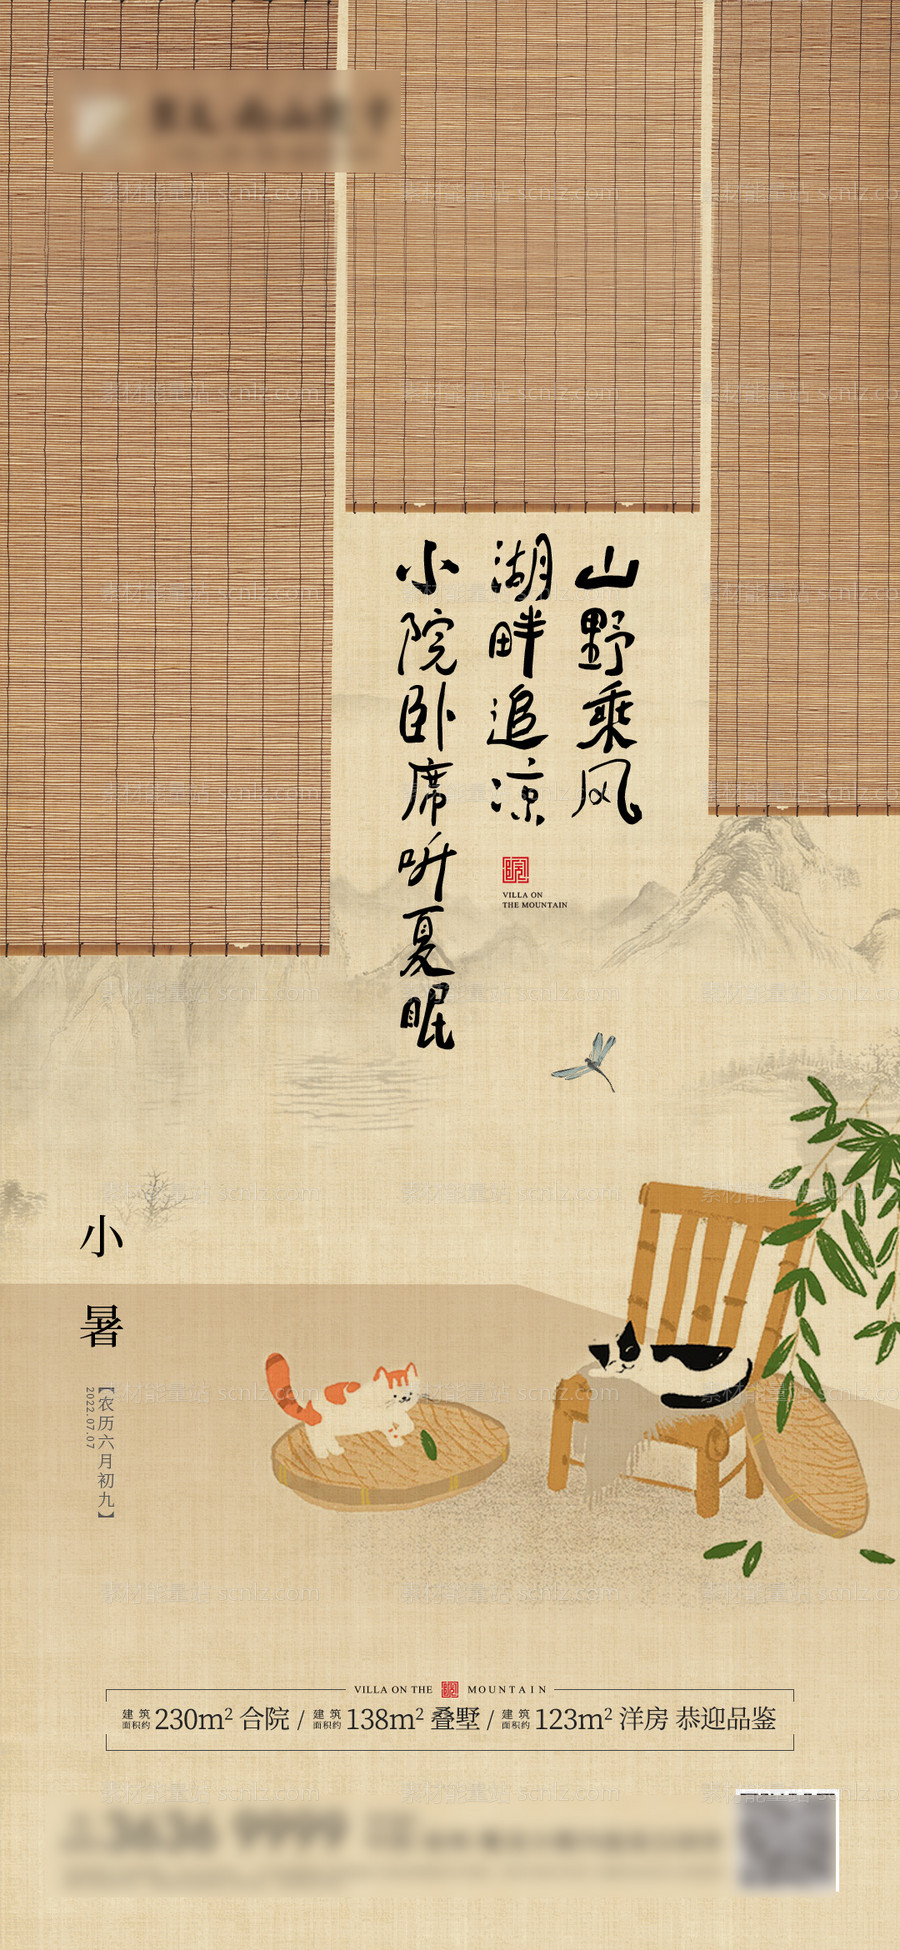 山野乘风
湖畔追凉
小院卧席听夏眠
VILLA ON
THE MOUNTAIN
小暑
【农历六月初九】
2022.07.07
VILLA ON THE MOUNTAIN
建筑面积约 230m² 合院 / 建筑面积约 138m² 叠墅 / 建筑面积约 123m² 洋房 恭迎品鉴
3636 9999
素材能量站 scnlz.com